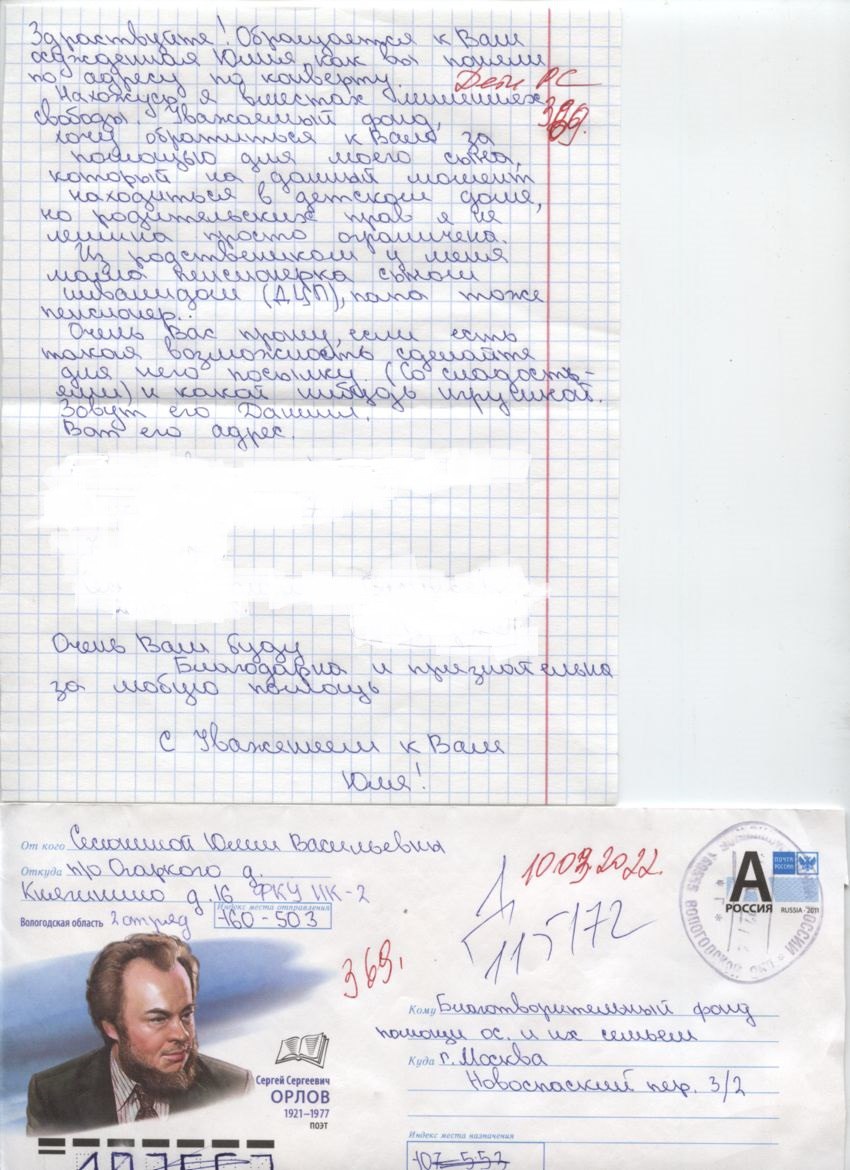 Здраствуйте! Обращается к Вам
осужденная Юлия, как вы поняли
по адресу на конверту.
Дети РС
369.
Нахожусь я вместах лишениях
свободы. Уважаемый фонд,
хочу обратиться к Вам за
помощью для моего сына,
который на данный момент
находиться в детском доме,
но родительских прав я не
лешина просто ограничена.
Из родствеников у меня
мама пенсионерка сыном
инвалидом (ДЦП), папа тоже
пенсионер..
Очень Вас прошу, если есть
такая возможность сделайте
для него посылку. (Со сладость-
ями) и какой нибудь игрушкой.
Зовут его Даниил.
Вот его адрес.
Очень Вам буду
Благодарна и признательна
за любую помощь
С Уважением к Вам
Юля!
От кого Сесюниной Юлии Васильевны
Откуда п/о Огаркого д.
Княгинино д.16 ФКУ ИК-2
Индекс места отправления
Вологодская область 2 отряд 160-503
10.03.2022.
115172
369.
А
ПОЧТА РОССИИ
РОССИЯ RUSSIA - 2011
Сергей Сергеевич
ОРЛОВ
1921–1977
ПОЭТ
Кому Благотворительный фонд
помощи ос. и их семьем
Куда г. Москва
Новоспаский пер. 3/2
Индекс места назначения
107-553